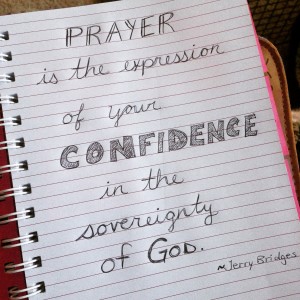 PRAYER
is the expression
of your
CONFIDENCE
in the
sovereignty
of GOD.
~Jerry Bridges